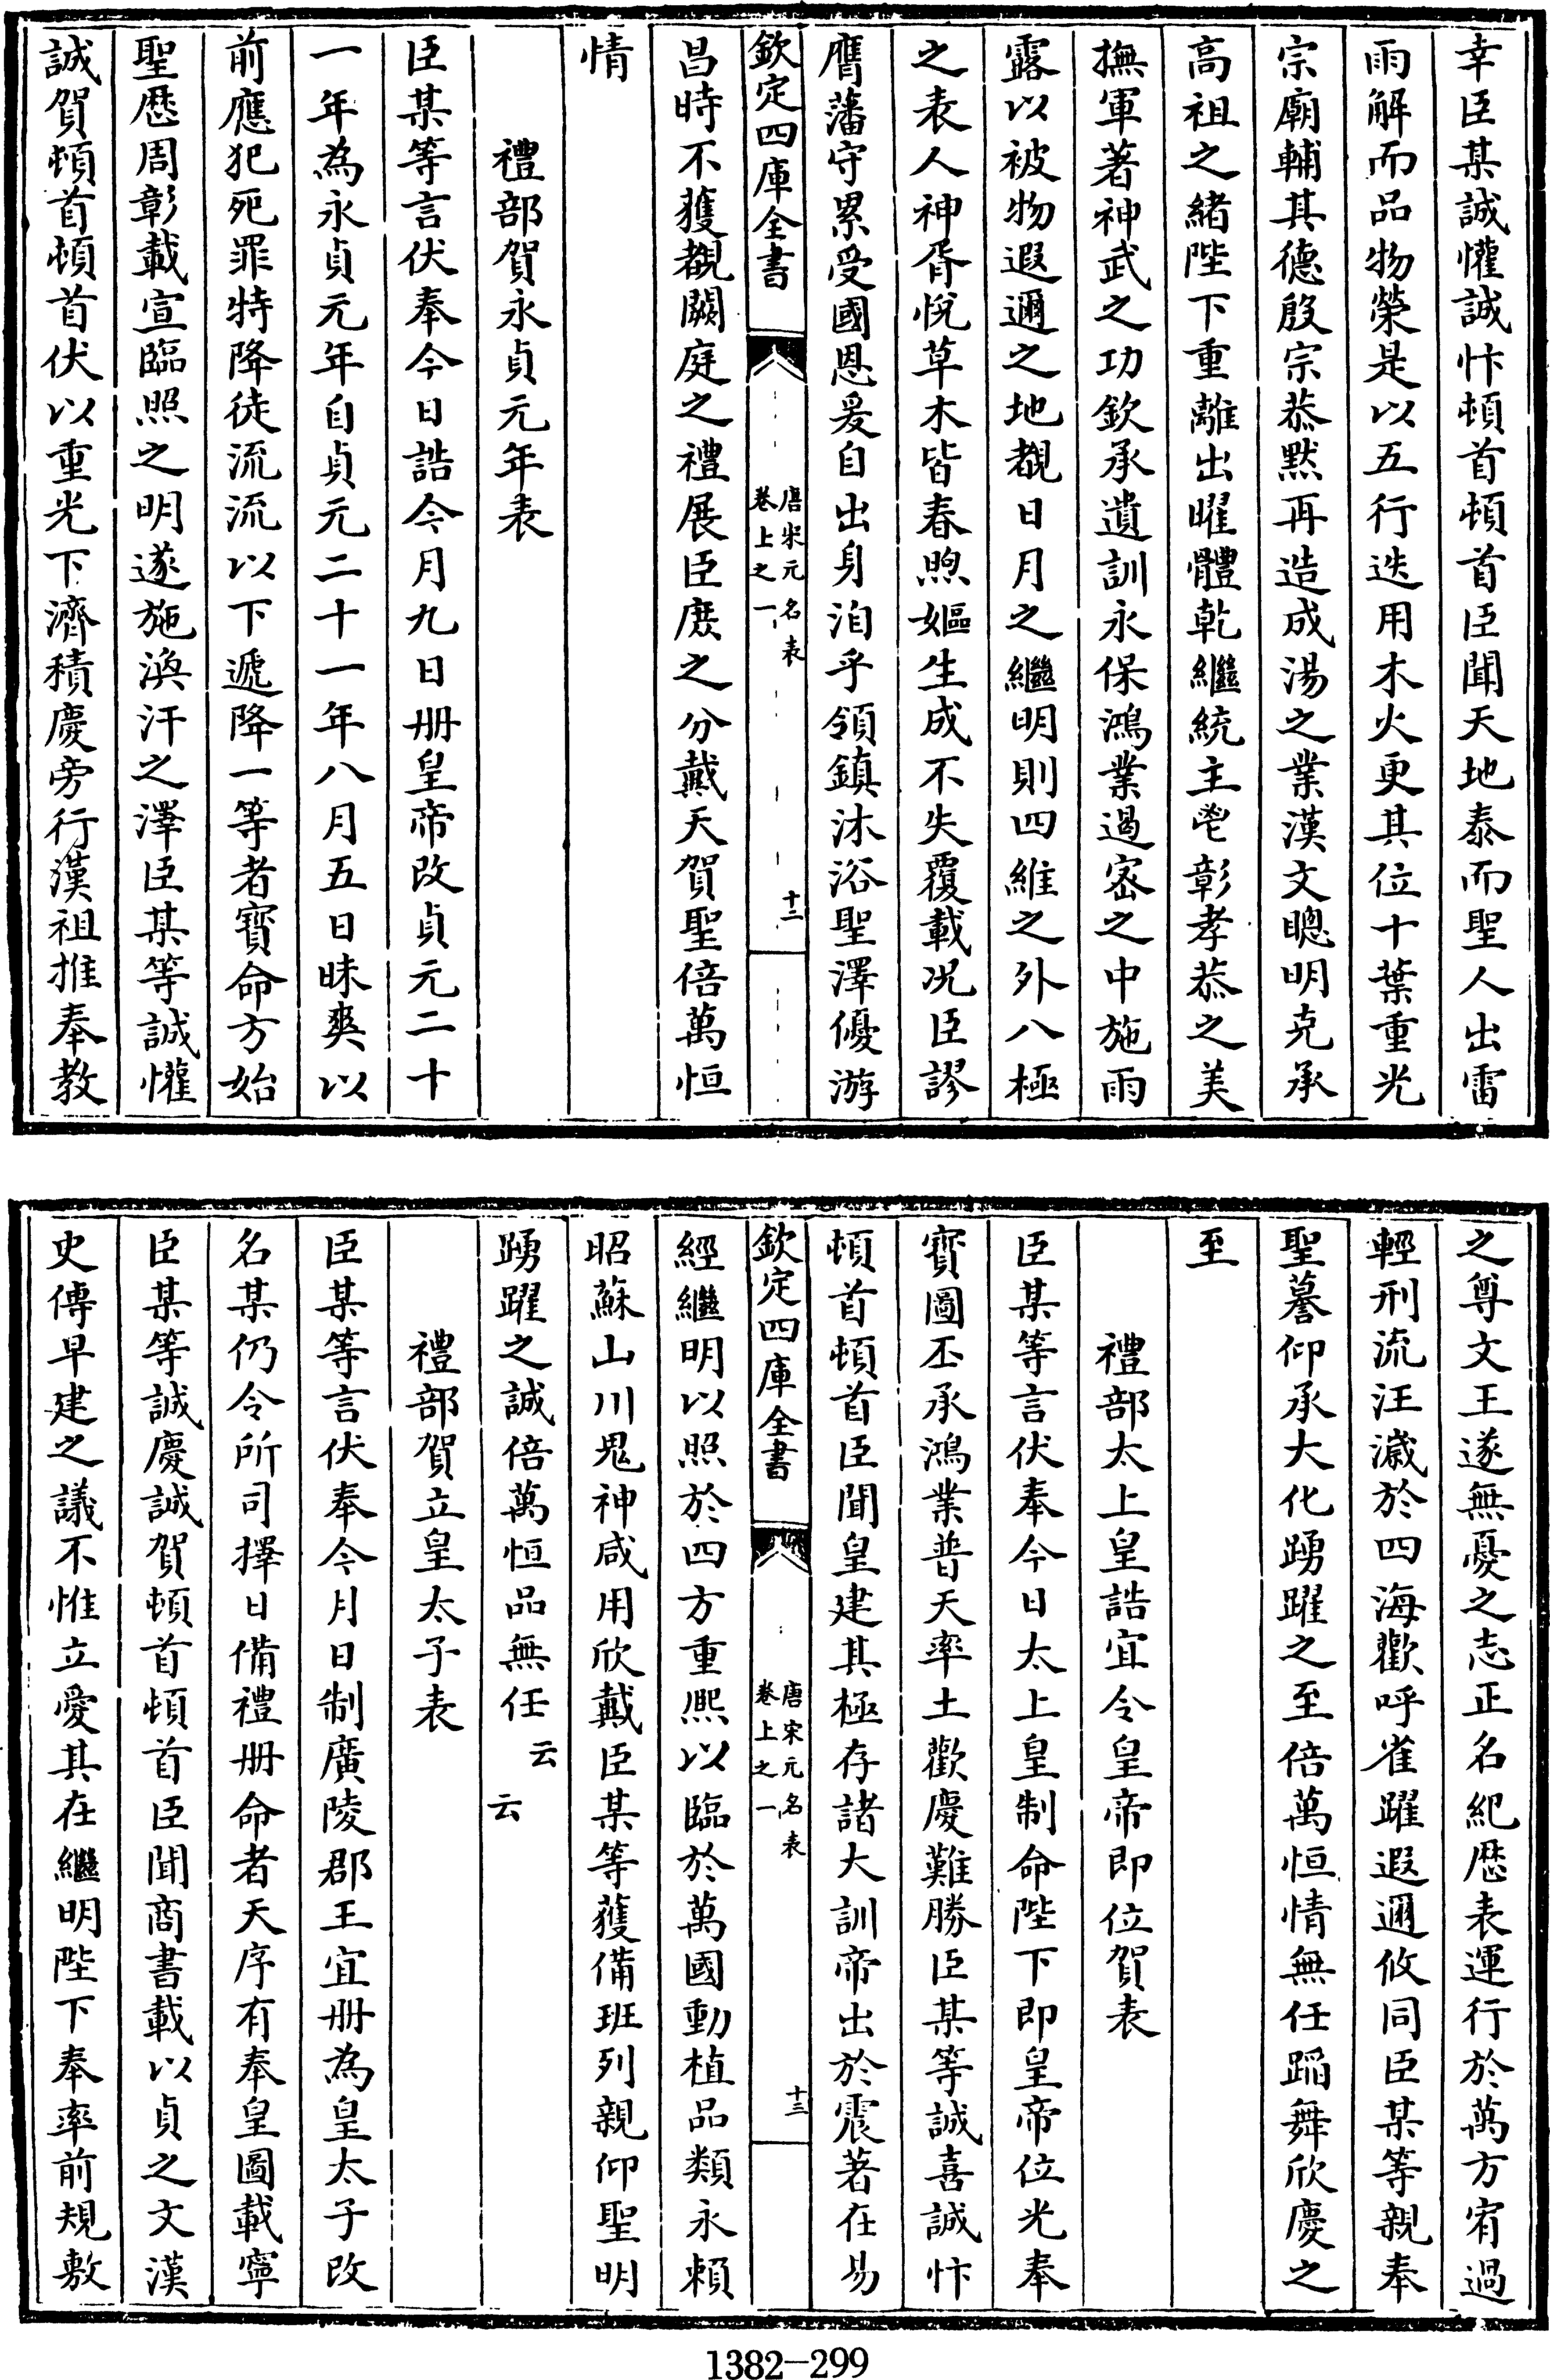 幸臣某誠懽誠忭頓首頓首臣聞天地泰而聖人出雷
雨解而品物榮是以五行迭用木火更其位十葉重光
宗廟輔其德殷宗恭默再造成湯之業漢文聰明克承
高祖之緒陛下重離出曜體乾繼統主鬯彰孝恭之美
撫軍著神武之功欽承遺訓永保鴻業遏密之中施雨
露以被物遐邇之地覩日月之繼明則四維之外八極
之表人神胥悅草木皆春煦嫗生成不失覆載况臣謬
膺藩守累受國恩爰自出身洎乎領鎮沐浴聖澤優游
欽定四庫全書
唐宋元名表
卷上之一
十二
昌時不獲覩闕庭之禮展臣庶之分戴天賀聖倍萬恒
情
禮部賀永貞元年表
臣某等言伏奉今日誥今月九日册皇帝改貞元二十
一年為永貞元年自貞元二十一年八月五日昧爽以
前應犯死罪特降徒流流以下遞降一等者寳命方始
聖厯周彰載宣臨照之明遂施渙汗之澤臣某等誠懽
誠賀頓首頓首伏以重光下濟積慶旁行漢祖推奉教
之尊文王遂無憂之志正名紀厯表運行於萬方宥過
輕刑流汪濊於四海歡呼雀躍遐邇攸同臣某等親奉
聖謩仰承大化踴躍之至倍萬恒情無任蹈舞欣慶之
至
禮部太上皇誥宜令皇帝即位賀表
臣某等言伏奉今日太上皇制命陛下即皇帝位光奉
寳圖丕承鴻業普天率土歡慶難勝臣某等誠喜誠忭
頓首頓首臣聞皇建其極存諸大訓帝出於震著在易
欽定四庫全書
唐宋元名表
卷上之一
十三
經繼明以照於四方重熈以臨於萬國動植品類永賴
昭蘇山川鬼神咸用欣戴臣某等獲備班列親仰聖明
踴躍之誠倍萬恒品無任云云
禮部賀立皇太子表
臣某等言伏奉今月日制廣陵郡王宜册為皇太子改
名某仍令所司擇日備禮册命者天序有奉皇圖載寧
臣某等誠慶誠賀頓首頓首臣聞商書載以貞之文漢
史傳早建之議不惟立愛其在繼明陛下奉率前規敷
1382—299